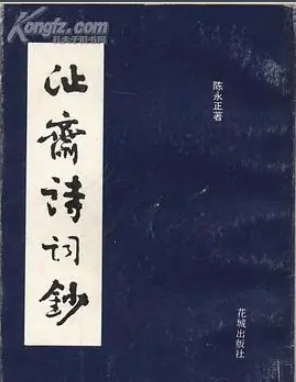 Kongfz.com
孔夫子旧书网
沚齋詩词鈔
陈永正著
花城出版社